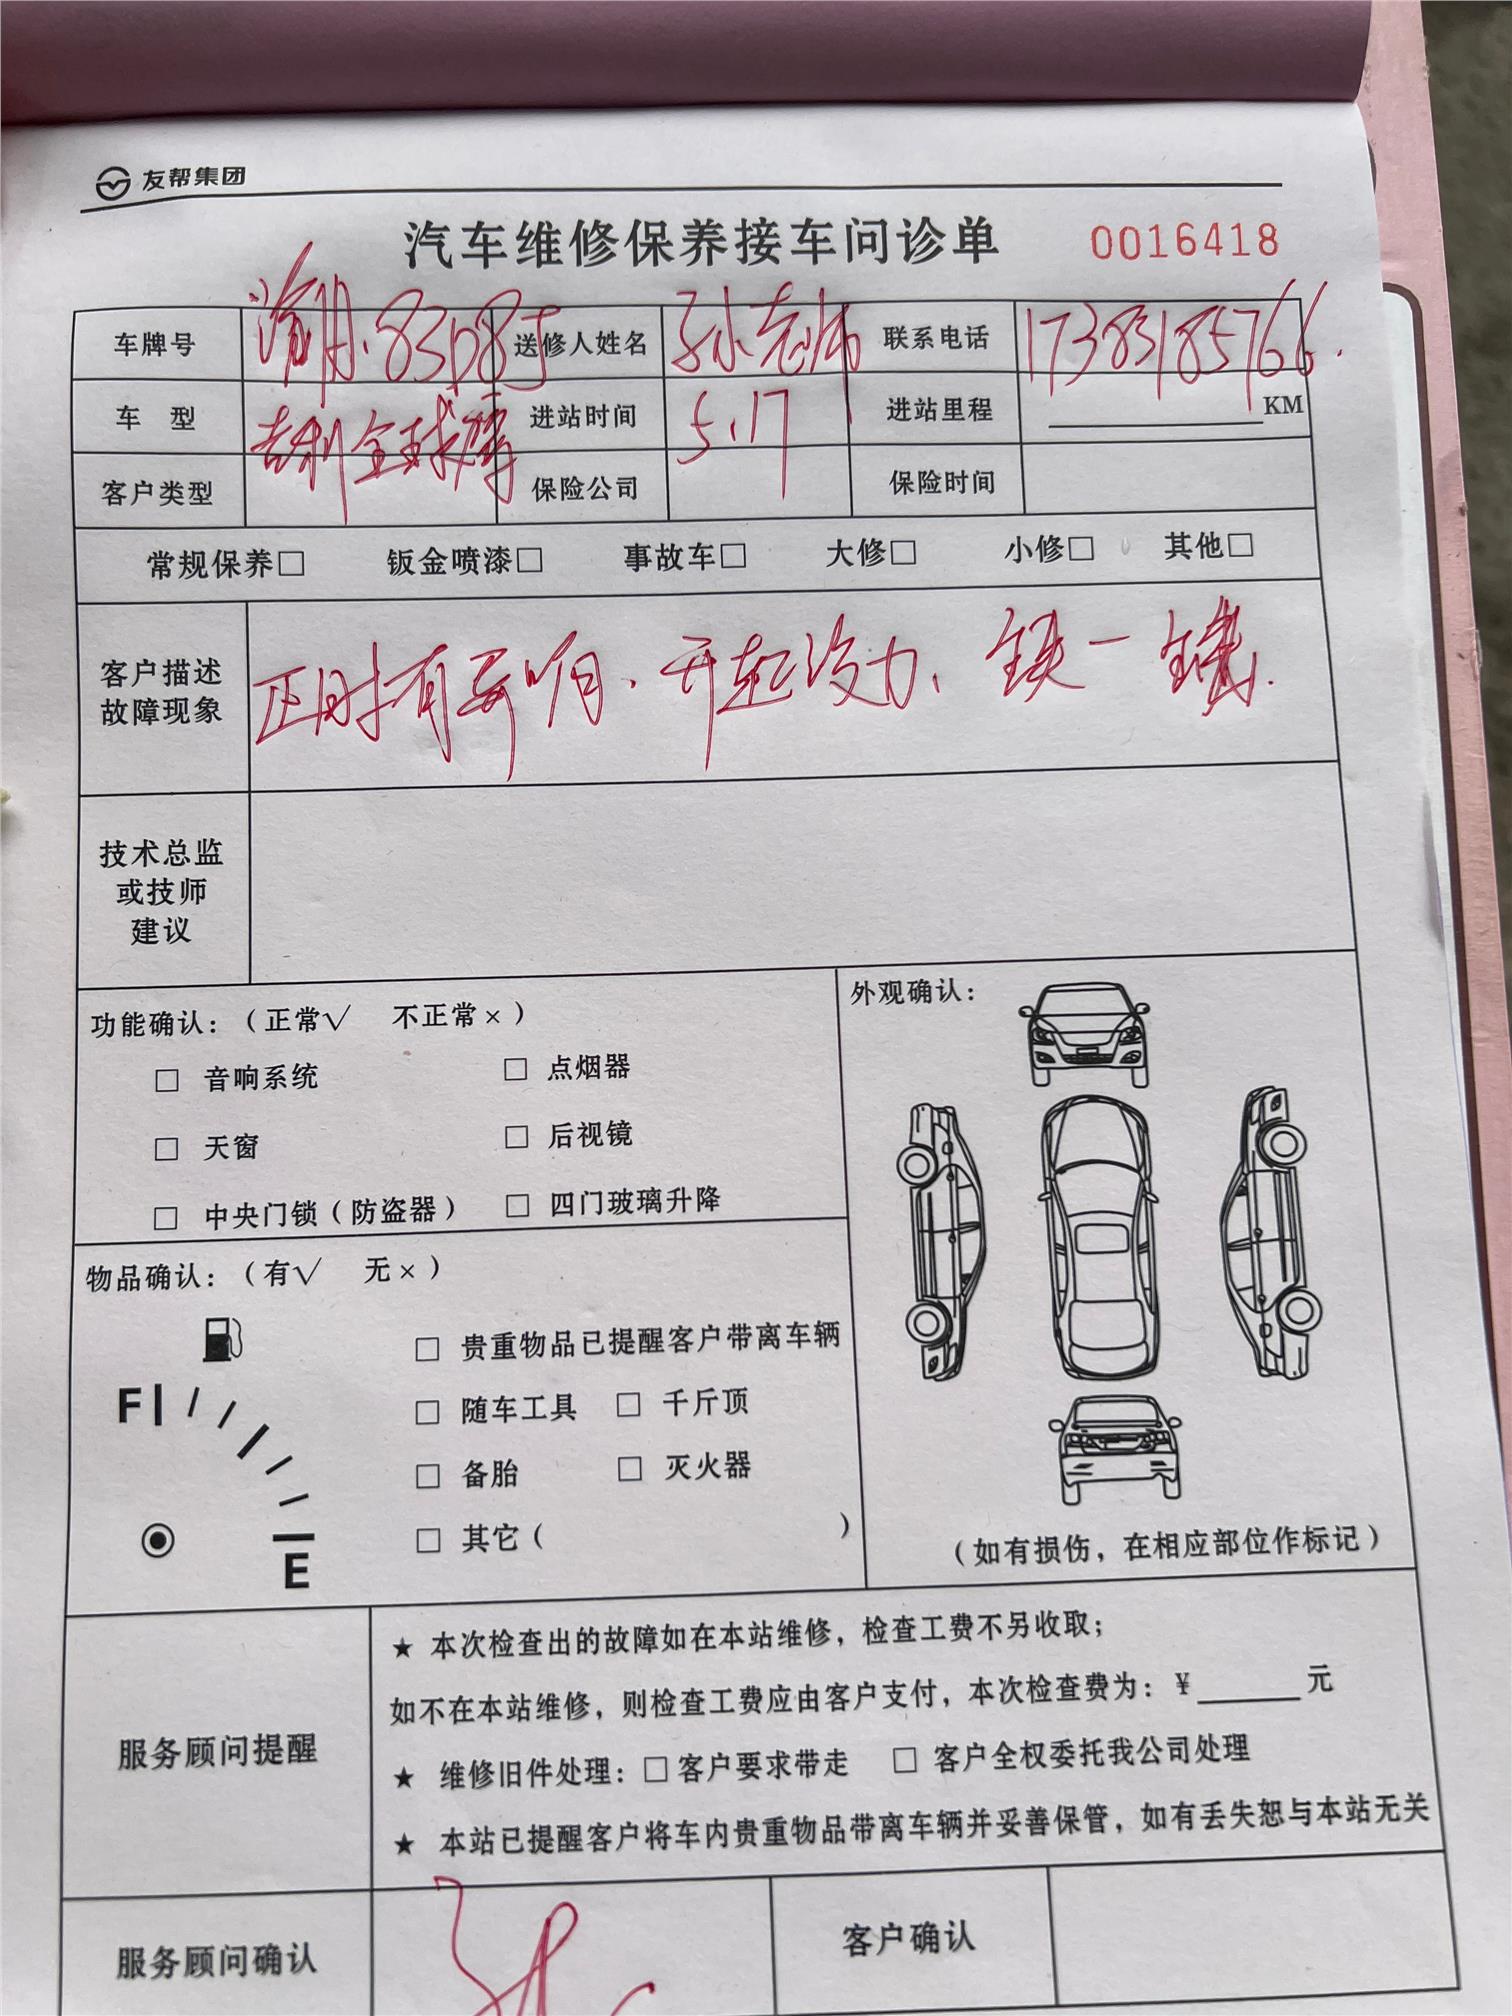 友帮集团
汽车维修保养接车问诊单 0016418
车牌号 渝A·83D8J 送修人姓名 孙老师 联系电话 17383185766
车 型 吉利全球鹰 进站时间 5.17 进站里程 KM
客户类型 保险公司 保险时间
常规保养□ 钣金喷漆□ 事故车□ 大修□ 小修□ 其他□
客户描述
故障现象
正时有异响.开起没力、铁一
技术总监
或技师
建议
功能确认：（正常√ 不正常×）
□ 音响系统 □ 点烟器
□ 天窗 □ 后视镜
□ 中央门锁（防盗器） □ 四门玻璃升降
外观确认：
（如有损伤，在相应部位作标记）
物品确认：（有√ 无×）
F
E
□ 贵重物品已提醒客户带离车辆
□ 随车工具 □ 千斤顶
□ 备胎 □ 灭火器
□ 其它（ ）
服务顾问提醒
★ 本次检查出的故障如在本站维修，检查工费不另收取；
如不在本站维修，则检查工费应由客户支付，本次检查费为：¥______元
★ 维修旧件处理：□客户要求带走 □ 客户全权委托我公司处理
★ 本站已提醒客户将车内贵重物品带离车辆并妥善保管，如有丢失恕与本站无关
服务顾问确认 客户确认